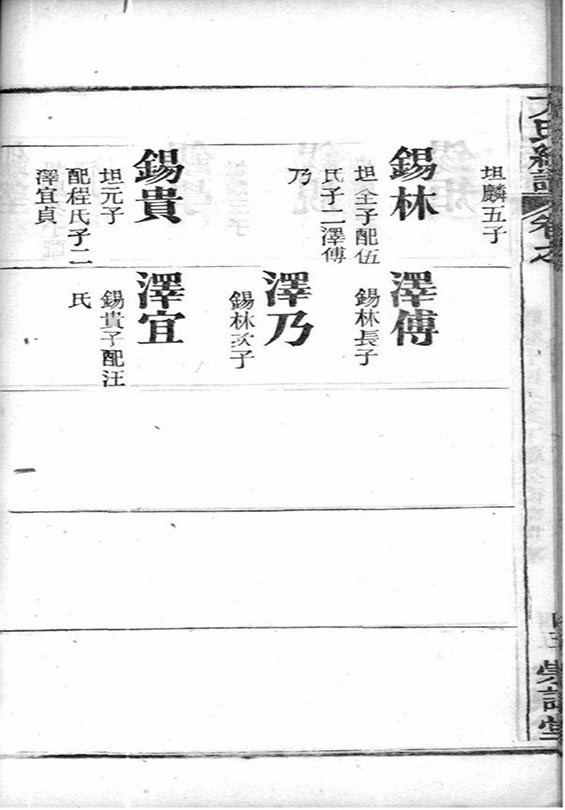 坦麟五子
錫林
坦全子配伍
氏子二澤傅
乃
錫貴
坦元子
配程氏子二
澤宜貞
澤傅
錫林長子
澤乃
錫林次子
澤宜
錫貴子配汪
氏
氏統譜
卷之